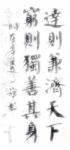 達則兼濟天下
窮則獨善其身